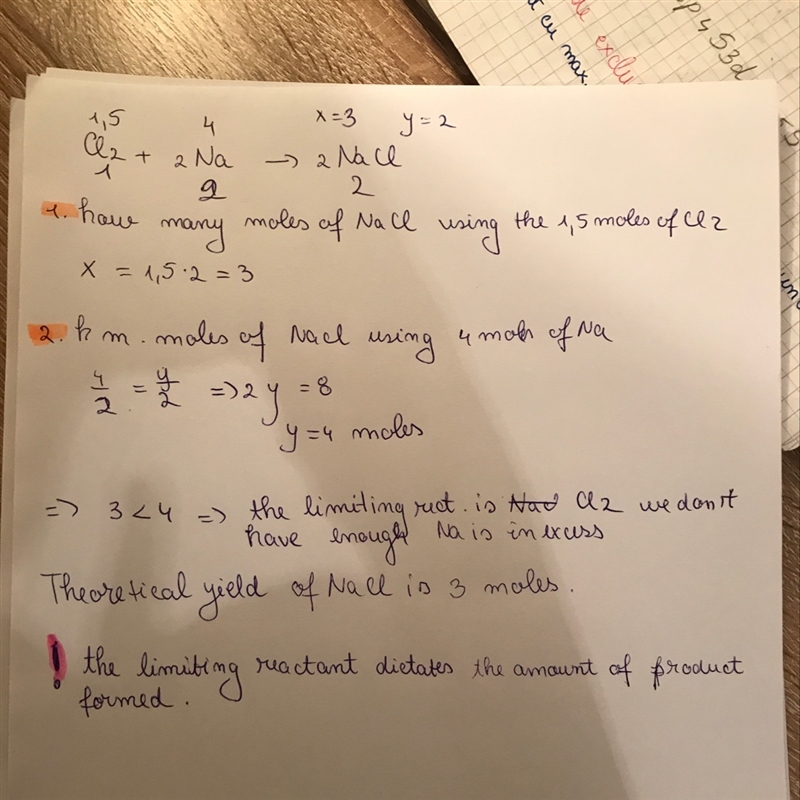 1,5 4 x=3 y=2
Cl2 + 2Na → 2NaCl
1 2 2
1. how many moles of NaCl using the 1,5 moles of Cl2
x = 1,5·2 = 3
2. h m. moles of NaCl using 4 mols of Na
4/2 = y/2 => 2y = 8
y = 4 moles
=> 3 < 4 => the limiting rect. is NaCl Cl2 we don't
have enough Na is in excess
Theoretical yield of NaCl is 3 moles.
! the limiting reactant dictates the amount of product
formed.
de exclu
cu max.
p 4s3d